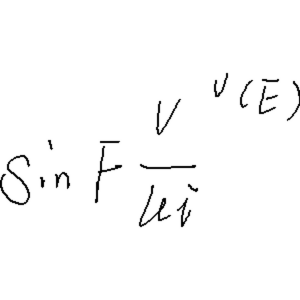 sin F \frac{V}{\mu i}^{v(E)}